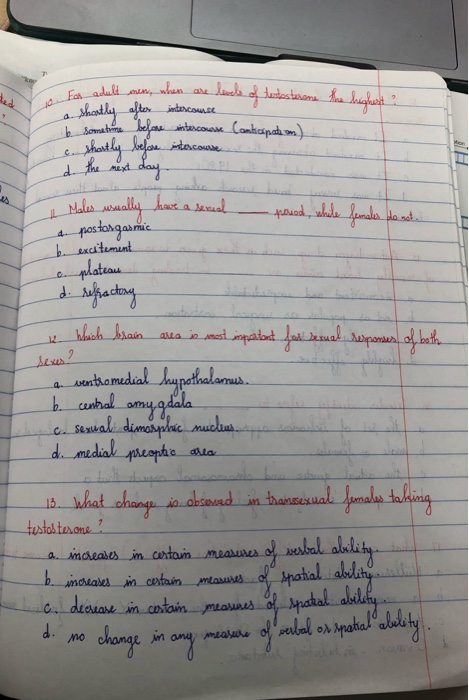 10. For adult men, when are levels of testosterone the highest?
a. shortly after intercourse
b. sometime before intercourse (anticipation)
c. shortly before intercourse
d. the next day.
11. Males usually have a sexual ____ period, while females do not.
a. postorgasmic
b. excitement
c. plateau
d. refractory
12. Which brain area is most important for sexual responses of both
sexes?
a. ventromedial hypothalamus.
b. central amygdala
c. sexual dimorphic nucleus.
d. medial preoptic area
13. What change is observed in transsexual females taking
testosterone?
a. increases in certain measures of verbal ability.
b. increases in certain measures of spatial ability.
c. decrease in certain measures of spatial ability.
d. no change in any measure of verbal or spatial ability.